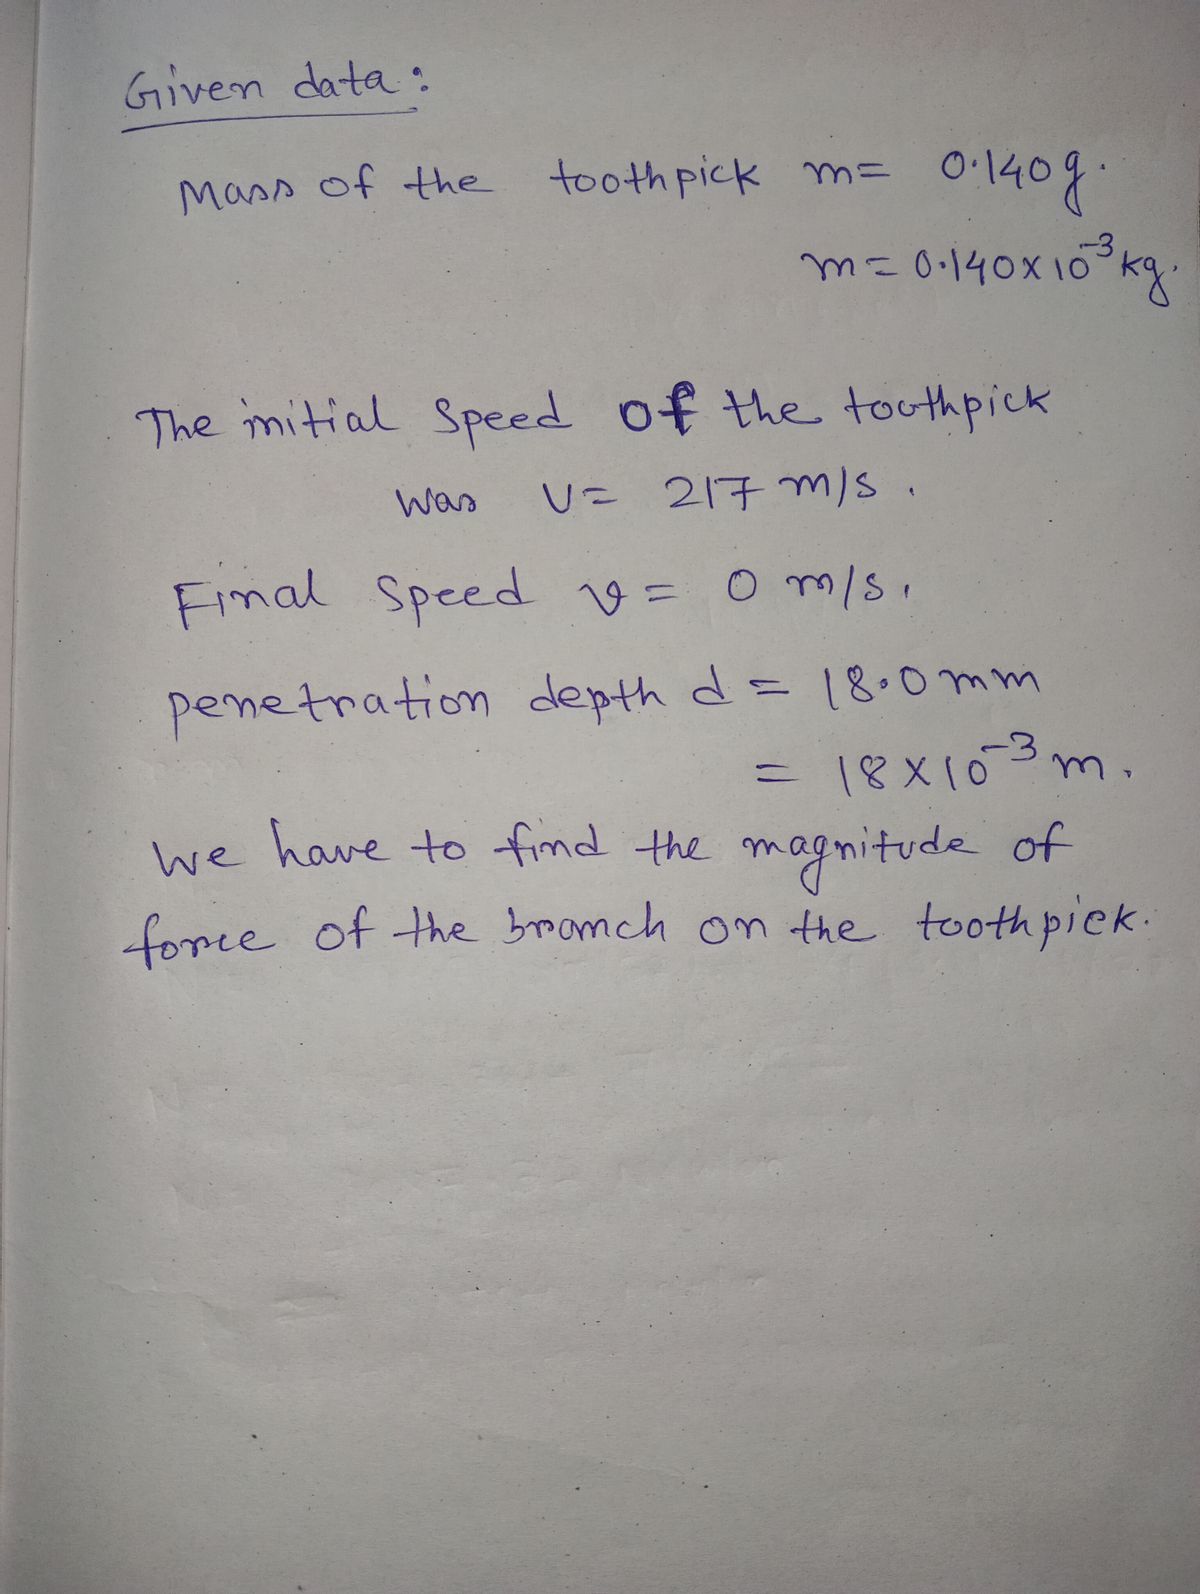 Given data :
Mass of the toothpick m= 0.140g.
m= 0.140x10⁻³ kg.
The initial Speed of the toothpick
was U= 217 m/s .
Final Speed v= 0 m/s.
penetration depth d = 18.0mm
= 18x10⁻³ m.
We have to find the magnitude of
force of the branch on the toothpick.